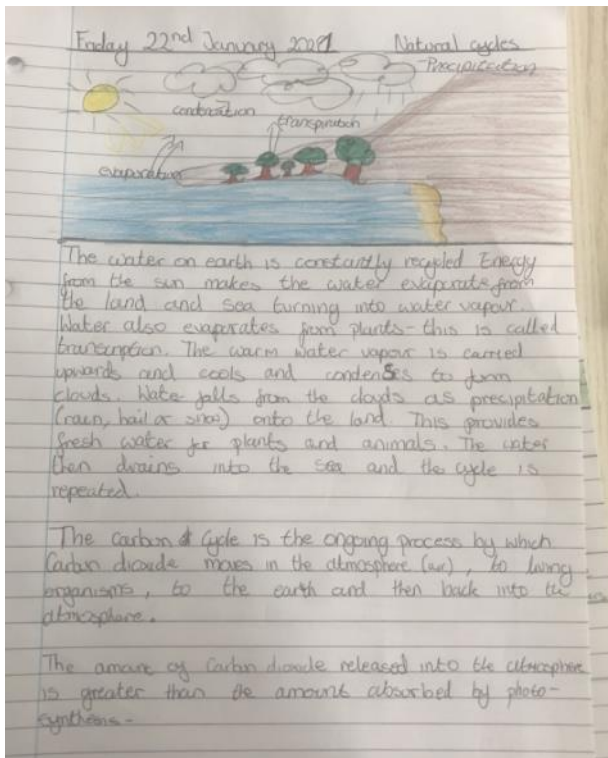 Friday 22nd January 2021 Natural cycles
Precipitation
condensation
transpiration
evaporation
The water on earth is constantly recycled Energy
from the sun makes the water evaporate from
the land and sea turning into water vapour.
Water also evaporates from plants - this is called
transcription. The warm water vapour is carried
upwards and cools and condenses to form
clouds. Water falls from the clouds as precipitation
(rain, hail or snow) onto the land. This provides
fresh water for plants and animals. The water
then drains into the sea and the cycle is
repeated.
The Carbon Cycle is the ongoing process by which
Carbon dioxide moves in the atmosphere (air), to living
organisms, to the earth and then back into the
atmosphere.
The amount of Carbon dioxide released into the atmosphere
is greater than the amount absorbed by photo-
synthesis-